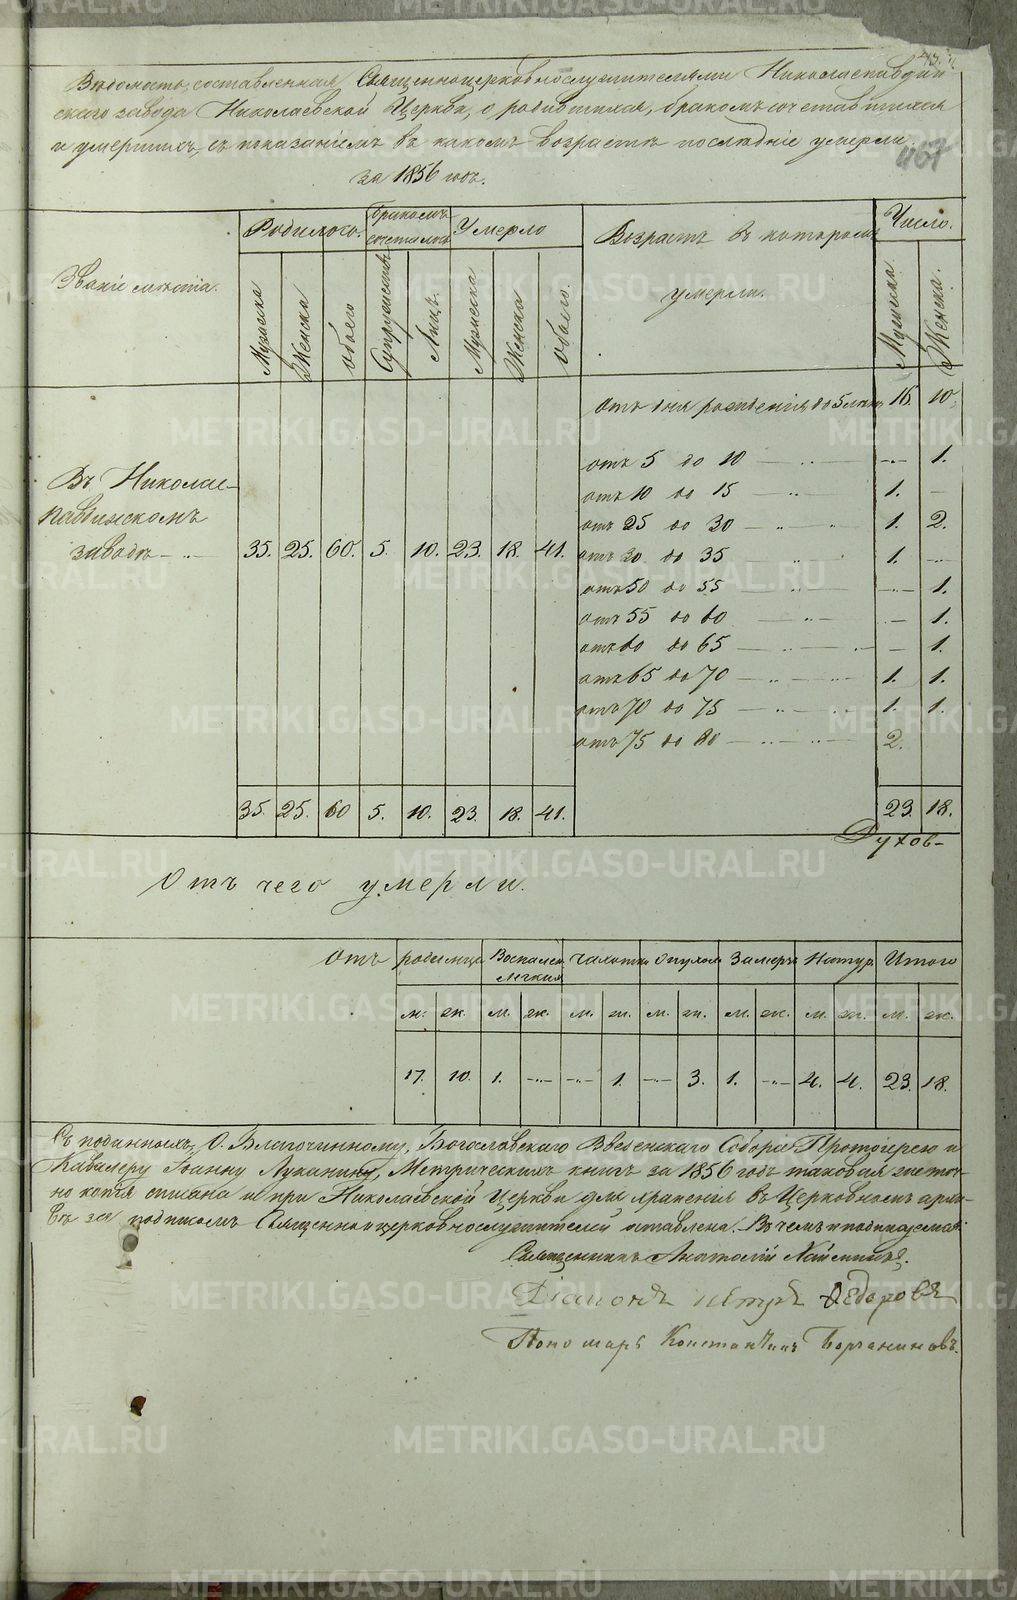 Ведомость, составленная Священноцерковнослужителями Николаепавдин-
скаго завода Николаевской Церкви, о родившихся, бракомъ сочетавшихся
и умершихъ, съ показаніемъ въ какомъ возрастѣ послѣдніе умерли
за 1856 годъ.
467
Званіе мѣста.
Родилось.
Бракомъ сочеталось
Умерло
Возрастъ въ которомъ умерли.
Число.
Мужеска Женска обоего Супружествъ Лицъ Мужеска Женска обоего. Мужеска Женска.
отъ дня рожденія до 5 лѣтъ 16. 10.
отъ 5 до 10 — „ — 1.
отъ 10 до 15 — „ 1. —
отъ 25 до 30 — „ „ 1. 2.
отъ 30 до 35 — „ 1. —
отъ 50 до 55 — „ — — 1.
отъ 55 до 60 — „ — — 1.
отъ 60 до 65 — „ — — 1.
отъ 65 до 70 — „ — 1. 1.
отъ 70 до 75 — „ — 1. 1.
отъ 75 до 80 — „ — 2.
Въ Николае-
павдинскомъ
заводѣ — „ — 35. 25. 60. 5. 10. 23. 18. 41.
35. 25. 60 5. 10. 23. 18. 41. 23. 18.
Духов-
Отъ чего умерли.
Отъ родимца Воспален. легкихъ Чахотки Опухоли Замерз. Натур. Итого
м. ж. м. ж. м. ж. м. ж. м. ж. м. ж. м. ж.
17. 10. 1. — — 1. — 3. 1. — 4. 4. 23. 18.
Съ подинныхъ, О. Благочинному, Богословскаго Введенскаго Собора Протоіерею и
Кавалеру Іоанну Луканину, Метрическихъ книгъ за 1856 годъ таковая же точ-
но копія списана и при Николаевской Церкви для храненія въ Церковномъ архи-
вѣ за подписомъ Священноицерковнослужителей оставлена. Въ чемъ и подписуемся:
Священникъ Анатолій
Діаконъ Петръ Ѳедоровъ
Пономарь Константинъ
METRIKI.GASO-URAL.RU